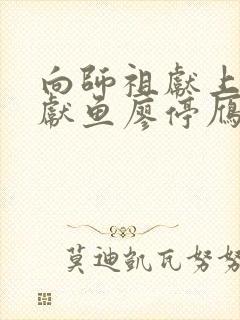 向師祖獻上
獻鱼廖停雁
莫迪凱瓦努努